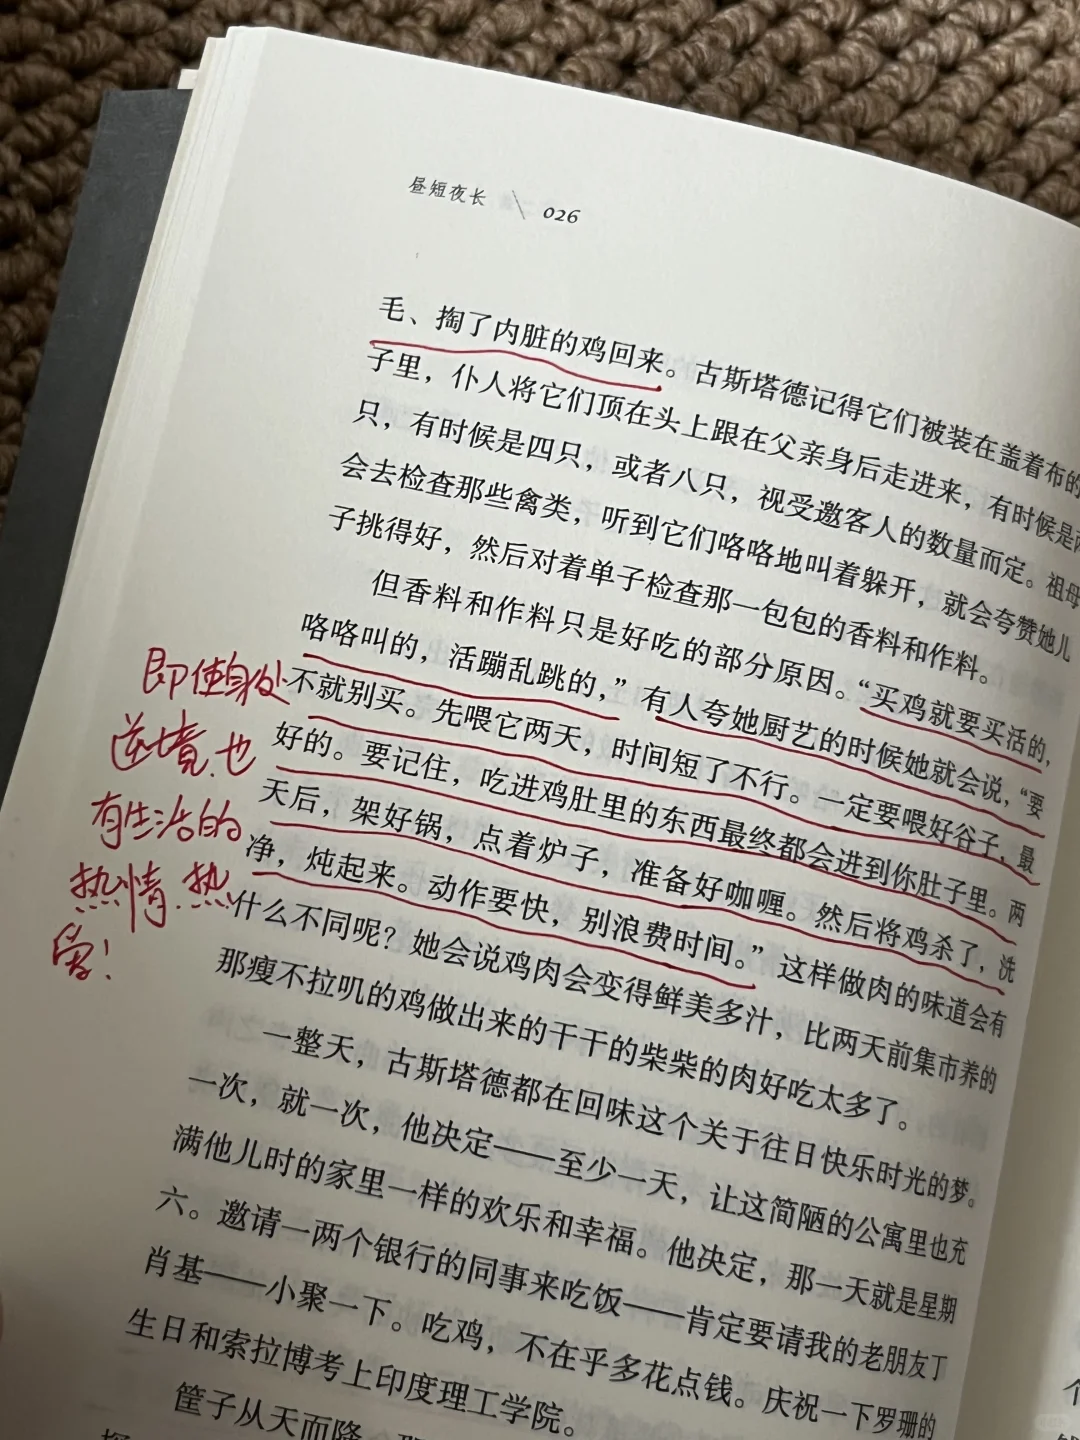 昼短夜长 \ 026
毛、掏了内脏的鸡回来。古斯塔德记得它们被装在盖着布的
子里，仆人将它们顶在头上跟在父亲身后走进来，有时候是两
只，有时候是四只，或者八只，视受邀客人的数量而定。祖母
会去检查那些禽类，听到它们咯咯地叫着躲开，就会夸赞她儿
子挑得好，然后对着单子检查那一包包的香料和作料。
但香料和作料只是好吃的部分原因。“买鸡就要买活的，
咯咯叫的，活蹦乱跳的，”有人夸她厨艺的时候她就会说，“要
不就别买。先喂它两天，时间短了不行。一定要喂好谷子，最
好的。要记住，吃进鸡肚里的东西最终都会进到你肚子里。两
天后，架好锅，点着炉子，准备好咖喱。然后将鸡杀了，洗
净，炖起来。动作要快，别浪费时间。”这样做肉的味道会有
什么不同呢？她会说鸡肉会变得鲜美多汁，比两天前集市养的
那瘦不拉叽的鸡做出来的干干的柴柴的肉好吃太多了。
一整天，古斯塔德都在回味这个关于往日快乐时光的梦。
一次，就一次，他决定——至少一天，让这简陋的公寓里也充
满他儿时的家里一样的欢乐和幸福。他决定，那一天就是星期
六。邀请一两个银行的同事来吃饭——肯定要请我的老朋友丁
肖基——小聚一下。吃鸡，不在乎多花点钱。庆祝一下罗珊的
生日和索拉博考上印度理工学院。
筐子从天而降，那
即使身处
逆境，也
有生活的
热情、热
爱！